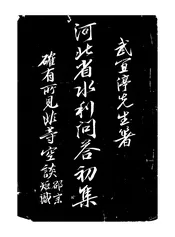 武宜淳先生著
河北省水利問答初集
確有所見非等空談
邵宗